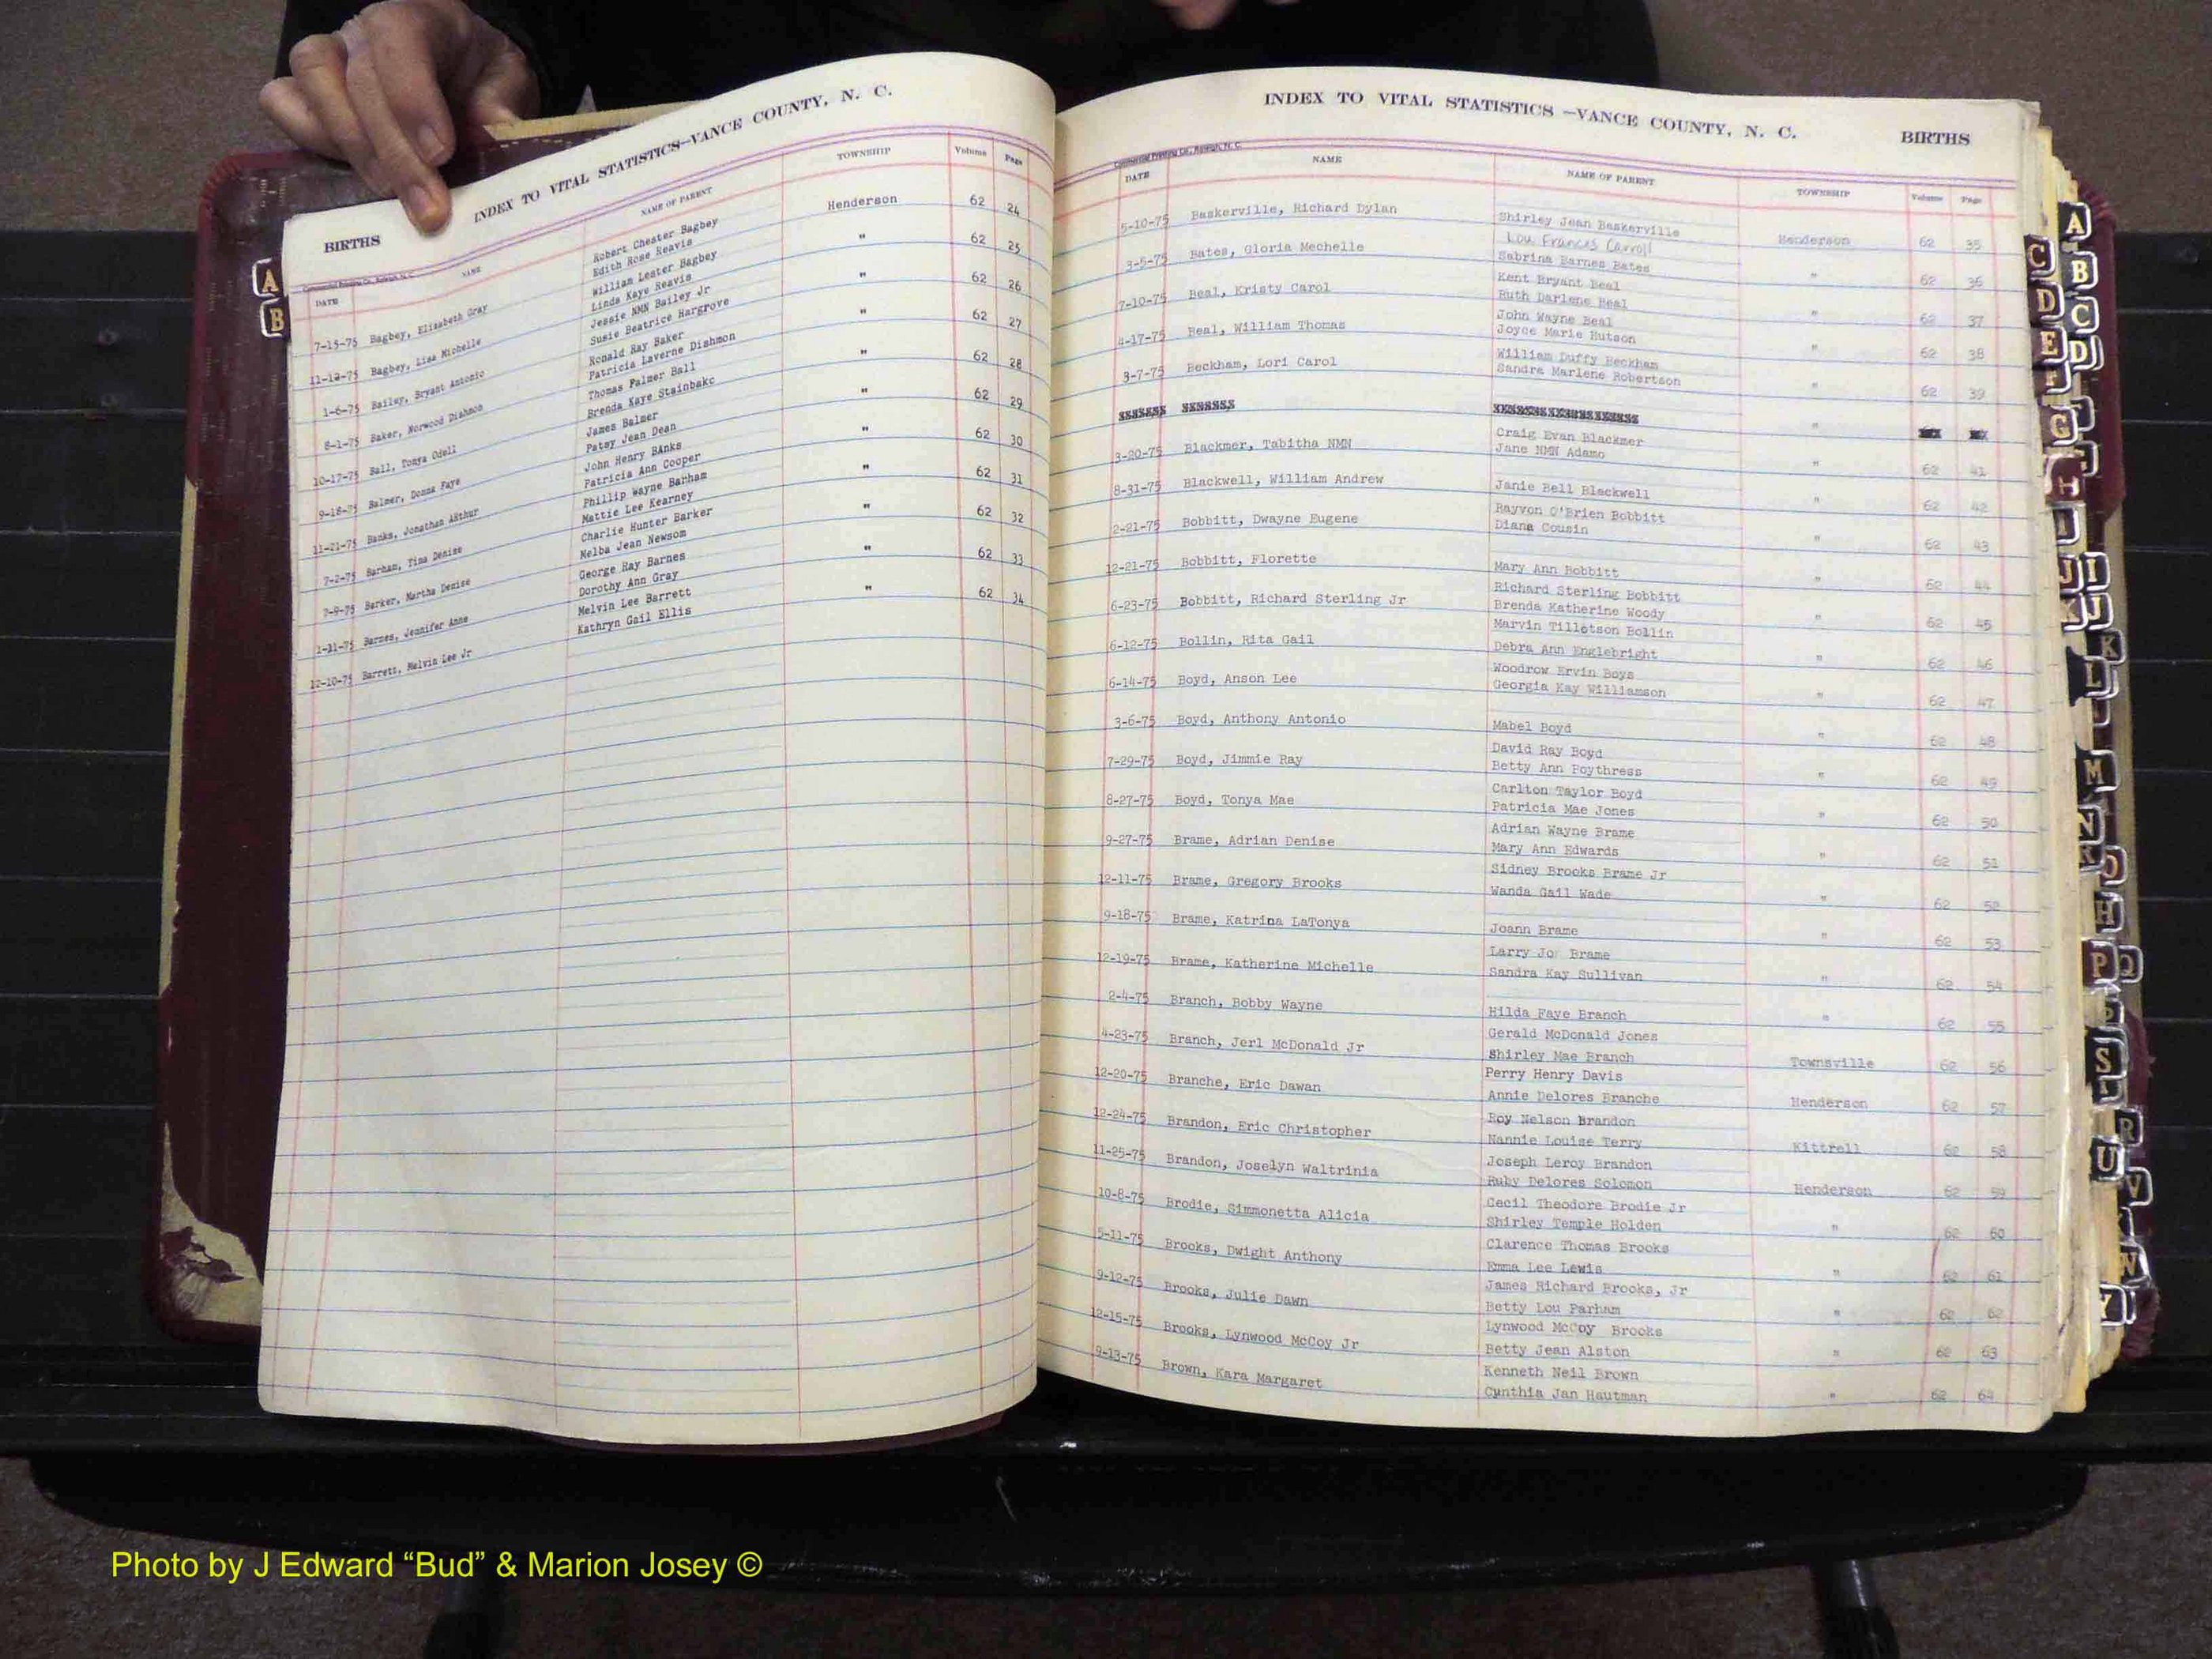 INDEX TO VITAL STATISTICS—VANCE COUNTY, N. C.
BIRTHS
Commercial Printing Co., Raleigh, N. C.
DATE NAME NAME OF PARENT TOWNSHIP Volume Page
7-15-75 Bagbey, Elizabeth Gray Robert Chester Bagbey Henderson 62 24
Edith Rose Reavis
11-12-75 Bagbey, Lisa Michelle William Lester Bagbey " 62 25
Linda Kaye Reavis
1-6-75 Bailey, Bryant Antonio Jessie NMN Bailey Jr " 62 26
Susie Beatrice Hargrove
8-1-75 Baker, Norwood Dishmon Ronald Ray Baker " 62 27
Patricia Laverne Dishmon
10-17-75 Ball, Tonya Odell Thomas Palmer Ball " 62 28
Brenda Kaye Stainbakc
9-18-75 Balmer, Donna Faye James Balmer " 62 29
Patsy Jean Dean
11-21-75 Banks, Jonathan ARthur John Henry BAnks " 62 30
Patricia Ann Cooper
7-2-75 Barham, Tina Denise Phillip Wayne Barham " 62 31
Mattie Lee Kearney
7-9-75 Barker, Martha Denise Charlie Hunter Barker " 62 32
Melba Jean Newsom
1-31-75 Barnes, Jennifer Anne George Ray Barnes " 62 33
Dorothy Ann Gray
12-10-75 Barrett, Melvin Lee Jr Melvin Lee Barrett " 62 34
Kathryn Gail Ellis
INDEX TO VITAL STATISTICS —VANCE COUNTY, N. C. BIRTHS
Commercial Printing Co., Raleigh, N. C.
DATE NAME NAME OF PARENT TOWNSHIP Volume Page
5-10-75 Baskerville, Richard Dylan Shirley Jean Baskerville Henderson 62 35
Lou Frances Carroll
3-5-75 Bates, Gloria Mechelle Sabrina Barnes Bates " 62 36
7-10-75 Beal, Kristy Carol Kent Bryant Beal " 62 37
Ruth Darlene Beal
4-17-75 Beal, William Thomas John Wayne Beal " 62 38
Joyce Marie Hutson
3-7-75 Beckham, Lori Carol William Duffy Beckham " 62 39
Sandra Marlene Robertson
"
3-20-75 Blackmer, Tabitha NMN Craig Evan Blackmer " 62 41
Jane NMN Adamo
8-31-75 Blackwell, William Andrew Janie Bell Blackwell " 62 42
2-21-75 Bobbitt, Dwayne Eugene Rayvon O'Brien Bobbitt " 62 43
Diana Cousin
12-21-75 Bobbitt, Florette Mary Ann Bobbitt " 62 44
6-23-75 Bobbitt, Richard Sterling Jr Richard Sterling Bobbitt " 62 45
Brenda Katherine Woody
6-12-75 Bollin, Rita Gail Marvin Tillotson Bollin " 62 46
Debra Ann Englebright
6-14-75 Boyd, Anson Lee Woodrow Ervin Boys " 62 47
Georgia Kay Williamson
3-6-75 Boyd, Anthony Antonio Mabel Boyd " 62 48
7-29-75 Boyd, Jimmie Ray David Ray Boyd " 62 49
Betty Ann Poythress
8-27-75 Boyd, Tonya Mae Carlton Taylor Boyd " 62 50
Patricia Mae Jones
9-27-75 Brame, Adrian Denise Adrian Wayne Brame " 62 51
Mary Ann Edwards
12-11-75 Brame, Gregory Brooks Sidney Brooks Brame Jr " 62 52
Wanda Gail Wade
9-18-75 Brame, Katrina LaTonya Joann Brame " 62 53
12-19-75 Brame, Katherine Michelle Larry Jo Brame " 62 54
Sandra Kay Sullivan
2-4-75 Branch, Bobby Wayne Hilda Faye Branch " 62 55
4-23-75 Branch, Jerl McDonald Jr Gerald McDonald Jones Townsville 62 56
Shirley Mae Branch
12-20-75 Branche, Eric Dawan Perry Henry Davis Henderson 62 57
Annie Delores Branche
12-24-75 Brandon, Eric Christopher Roy Nelson Brandon Kittrell 62 58
Nannie Louise Terry
11-25-75 Brandon, Joselyn Waltrinia Joseph Leroy Brandon Henderson 62 59
Ruby Delores Solomon
10-8-75 Brodie, Simmonetta Alicia Cecil Theodore Brodie Jr " 62 60
Shirley Temple Holden
5-11-75 Brooks, Dwight Anthony Clarence Thomas Brooks " 62 61
Emma Lee Lewis
9-12-75 Brooks, Julie Dawn James Richard Brooks, Jr " 62 62
Betty Lou Parham
12-15-75 Brooks, Lynwood McCoy Jr Lynwood McCoy Brooks " 62 63
Betty Jean Alston
9-13-75 Brown, Kara Margaret Kenneth Neil Brown " 62 64
Cynthia Jan Hautman
A
B
A
B
C
C
D
D
E
G
H
I
J
I
J
K
L
M
N
O
H
P
Q
S
R
U
V
W
Y
Photo by J Edward “Bud” & Marion Josey ©